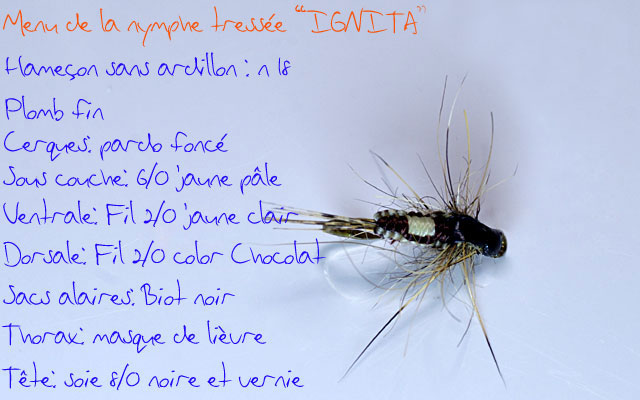 Menu de la nymphe tressée "IGNITA"
Hameçon sans ardillon : n 18
Plomb fin
Cerques: pardo foncé
Sous couche: 6/0 jaune pâle
Ventrale: Fil 2/0 jaune clair
Dorsale: Fil 2/0 color Chocolat
Sacs alaires: Biot noir
Thorax: masque de lièvre
Tête: soie 8/0 noire et vernie